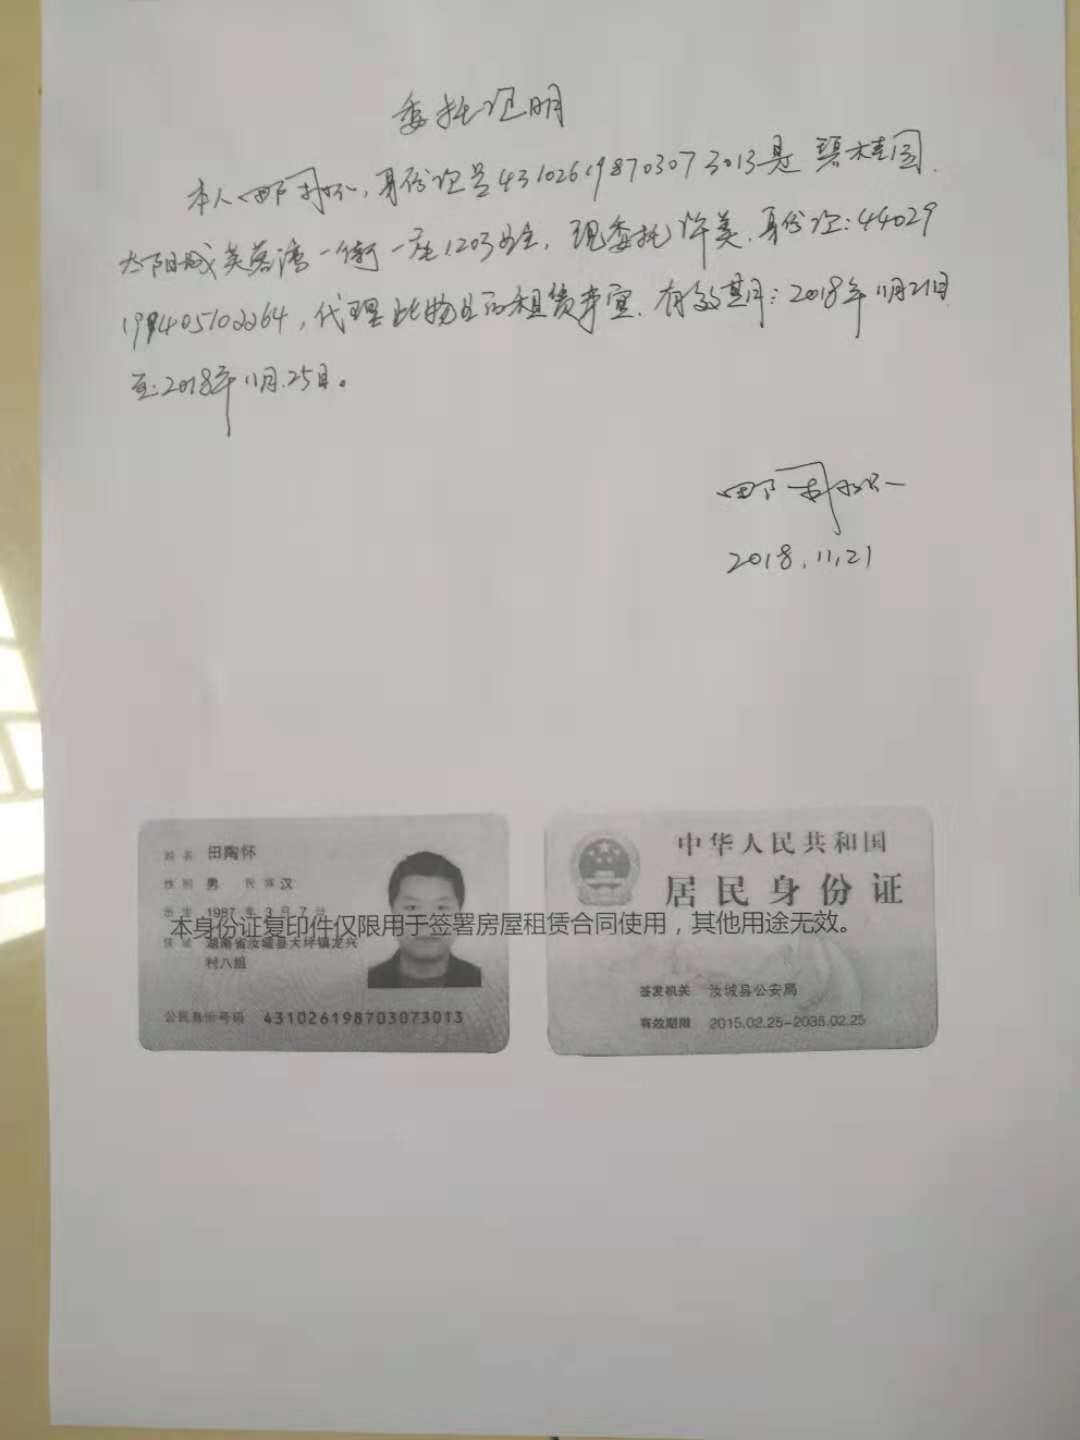 委托证明
本人田陶怀,身份证号431026198703073013是碧桂园.
太阳城芙蓉湾一街一座1203业主,现委托许美.身份证:44029
199405102264,代理此物业的租赁事宜.有效期:2018年11月21日
至2018年11月.25日。
田陶怀
2018.11.21
姓名 田陶怀
性别 男 民族 汉
出生 1987 年 3 月 7 日
住址 湖南省汝城县大坪镇龙兴
村八组
公民身份号码 431026198703073013
中华人民共和国
居民身份证
本身份证复印件仅限用于签署房屋租赁合同使用,其他用途无效。
签发机关 汝城县公安局
有效期限 2015.02.25-2035.02.25